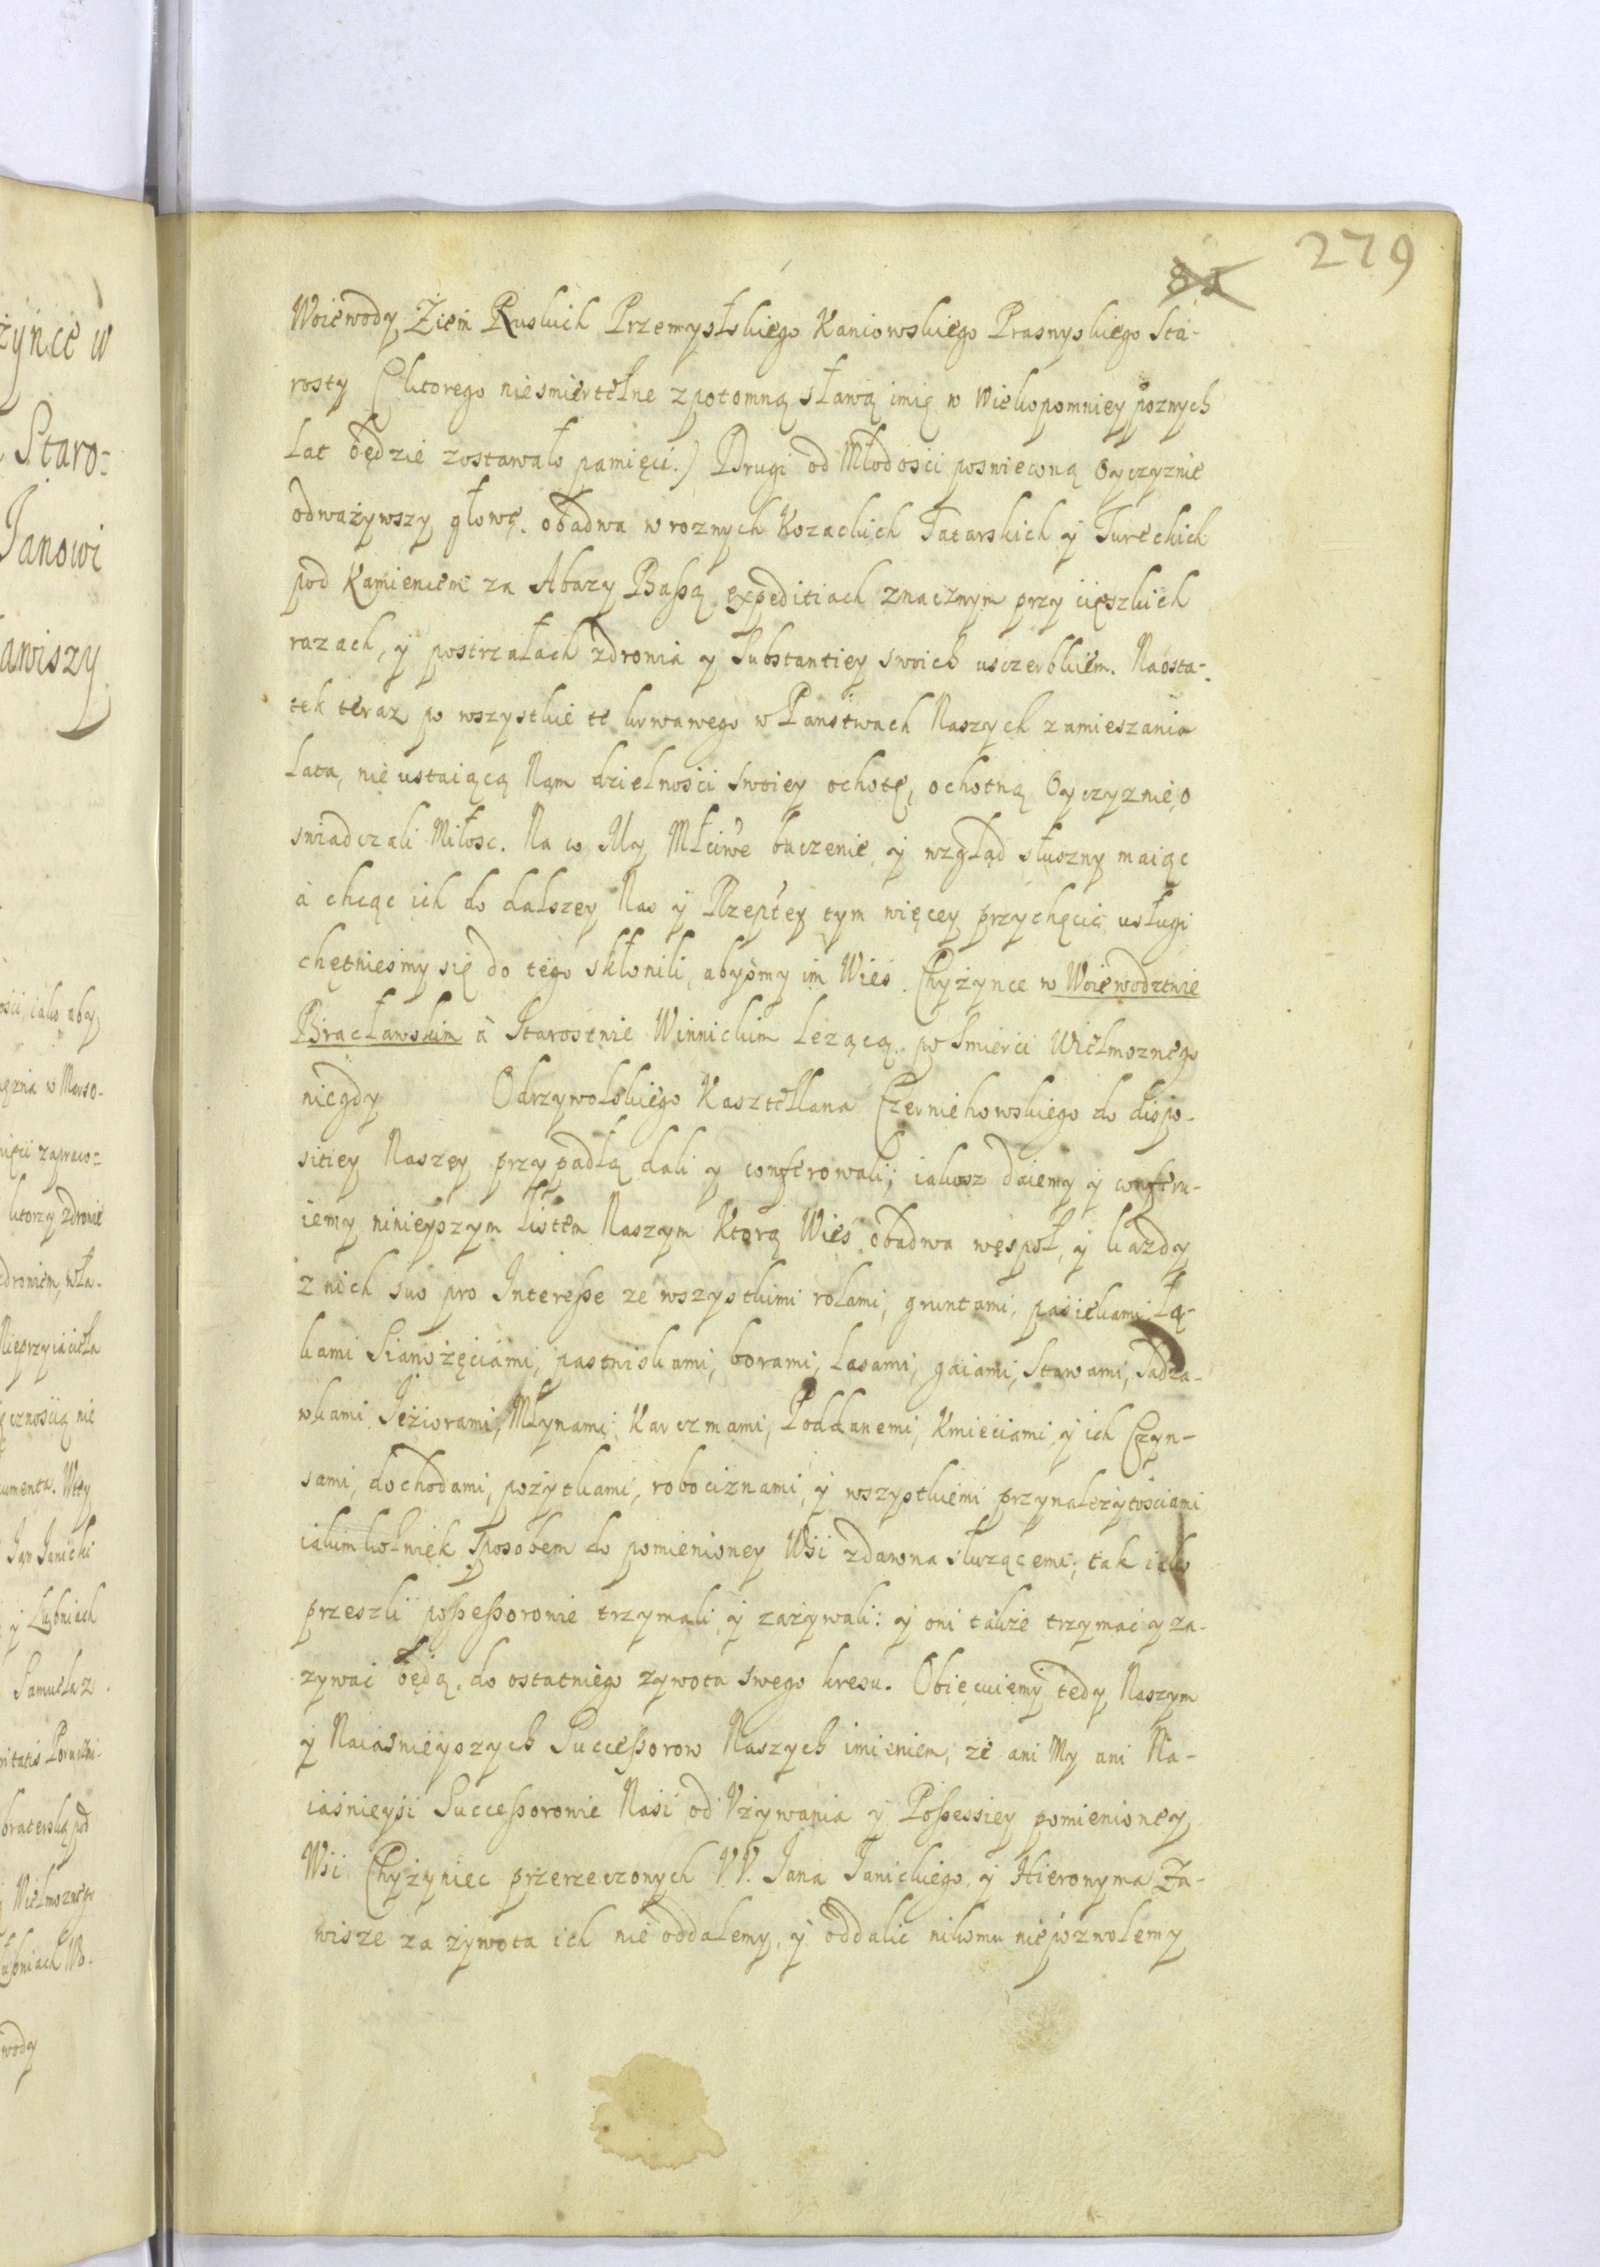 279
Woiewody Ziem Ruskich Przemyslskiego Kaniowskiego Prasnyskiego Sta-
rosty (ktorego niesmiertelne z potomną sławą imię w Wiekopomniey poznych
Lat będzie zostawało pamięci.) Drugi od Młodosci poswiecną Oyczyznie
odważywszy głowę. obadwa w roznych Kozackich Tatarskich y Tureckich
pod Kamiencem za Abazy Baszą expeditiach znacznym przy cięszkich
razach, y postrzałach zdrowia y Substantiey swoich usczerbkiem. Naosta-
tek teraz po wszystkie te krwawego w Panstwach Naszych zamieszania
Lata, nie ustaiącą Nam dzielnosci swoiey ochotę, ochotną Oyczyznie, o
swiadczali Miłosc. Na co My Młciwe baczenie, y wzgląd słuszny maiąc
à chcąc ich do dalszey Nas y Rzeptey tym więcey przychęcic usługi
chętniesmy się do tego skłonili, abysmy im Wies Chyżynce w Woiewodztwie
Bracławskim à Starostwie Winnickim Leżącą, po smierci Wielmoznego
niegdy Odrzywolskiego Kasztellana Czerniehowskiego do dispo-
sitiey Naszey przypadłą dali y conferowali; iakosz daiemy y conferu-
iemy ninieyszym listem Naszym Ktorą Wies obadwa wespoł, y kazdy
z nich suo pro Interesse ze wszystkimi rolami, gruntami, pasiekami, łą-
kami Sianożęciami, pastwiskami, borami, Lasami, gaiami, Stawami, Sadza-
wkami Jeziorami, Młynami, Karczmami, Poddanemi, Kmieciami y ich Czyn-
sami, dochodami, pożytkami, robociznami, y wszystkiemi przynależytosciami
iakimkolwiek sposobem do pomienioney Wsi zdawna słuzącemi, tak iako
przeszli possessorowie trzymali y zażywali: y oni także trzymac y za-
zywac będą, do ostatniego zywota swego kresu. Obiecuiemy tedy Naszym
y Naiasnieyszych Successorow Naszych imieniem, ze ani My ani Na-
iaśnieysi Successorowie Nasi od Vżywania y Possessiey pomienioney
Wsi Chyżyniec przerzeczonych VV. Jana Janickiego, y Hieronyma Za-
wisze za zywota ich nie oddalemy, y oddalic nikomu niepozwolemy